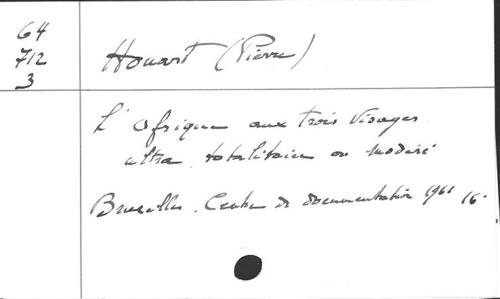 64
712
3
Houart (Pierre)
L'Afrique aux trois visages
ultra, totalitaire ou modéré
Bruxelles. Centre de documentation 1961 16.